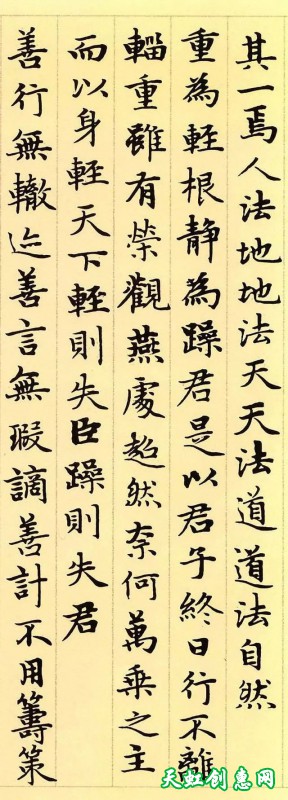 其一焉人法地地法天天法道道法自然
重為輕根静為躁君是以君子終日行不離
輜重雖有榮觀燕處超然奈何萬乘之主
而以身輕天下輕則失臣躁則失君
善行無轍迹善言無瑕謫善計不用籌策
天虹创惠网